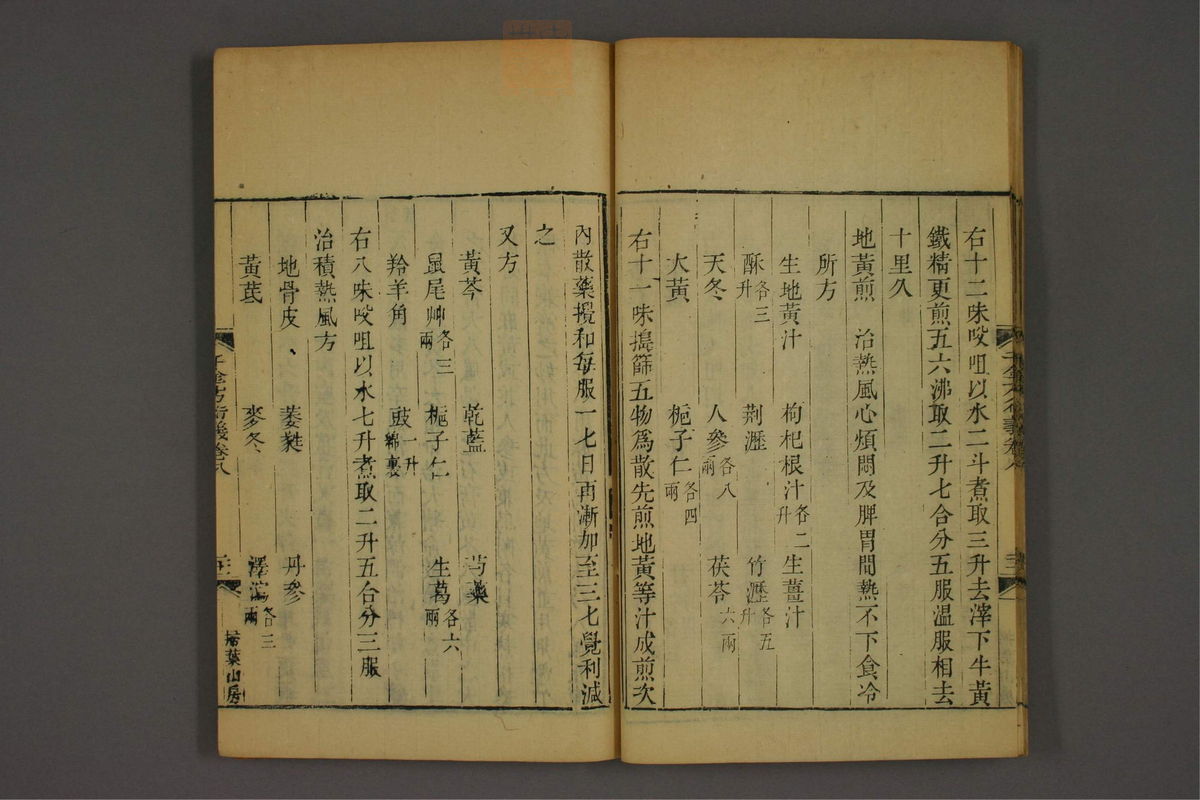 右十二味㕮咀以水二斗煮取三升去滓下牛黃
鐵精更煎五六沸取二升七合分五服溫服相去
十里久
地黃煎 治熱風心煩悶及脾胃間熱不下食冷
所方
生地黃汁 枸杞根汁各二升 生薑汁
酥各三升 荆瀝 竹瀝各五升
天冬 人參各八兩 茯苓六兩
大黃 梔子仁各四兩
右十一味搗篩五物爲散先煎地黃等汁成煎次
內散藥攪和每服一七日再漸加至三七覺利減
之
又方
黃芩 乾藍 芍藥
鼠尾艸各三兩 梔子仁 生葛各六兩
羚羊角 豉一升綿裹
右八味㕮咀以水七升煮取二升五合分三服
治積熱風方
地骨皮、 萎蕤 丹參
黃芪 麥冬 澤瀉各三兩
千金方衍義卷八
掃葉山房